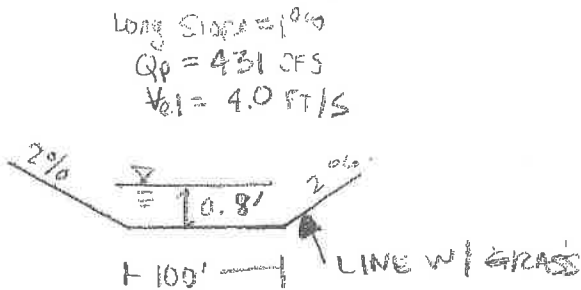 Long Slope = 1%
Qp = 431 CFS
Vel = 4.0 FT/S
2%
2%
0.8'
100'
LINE W/ GRASS